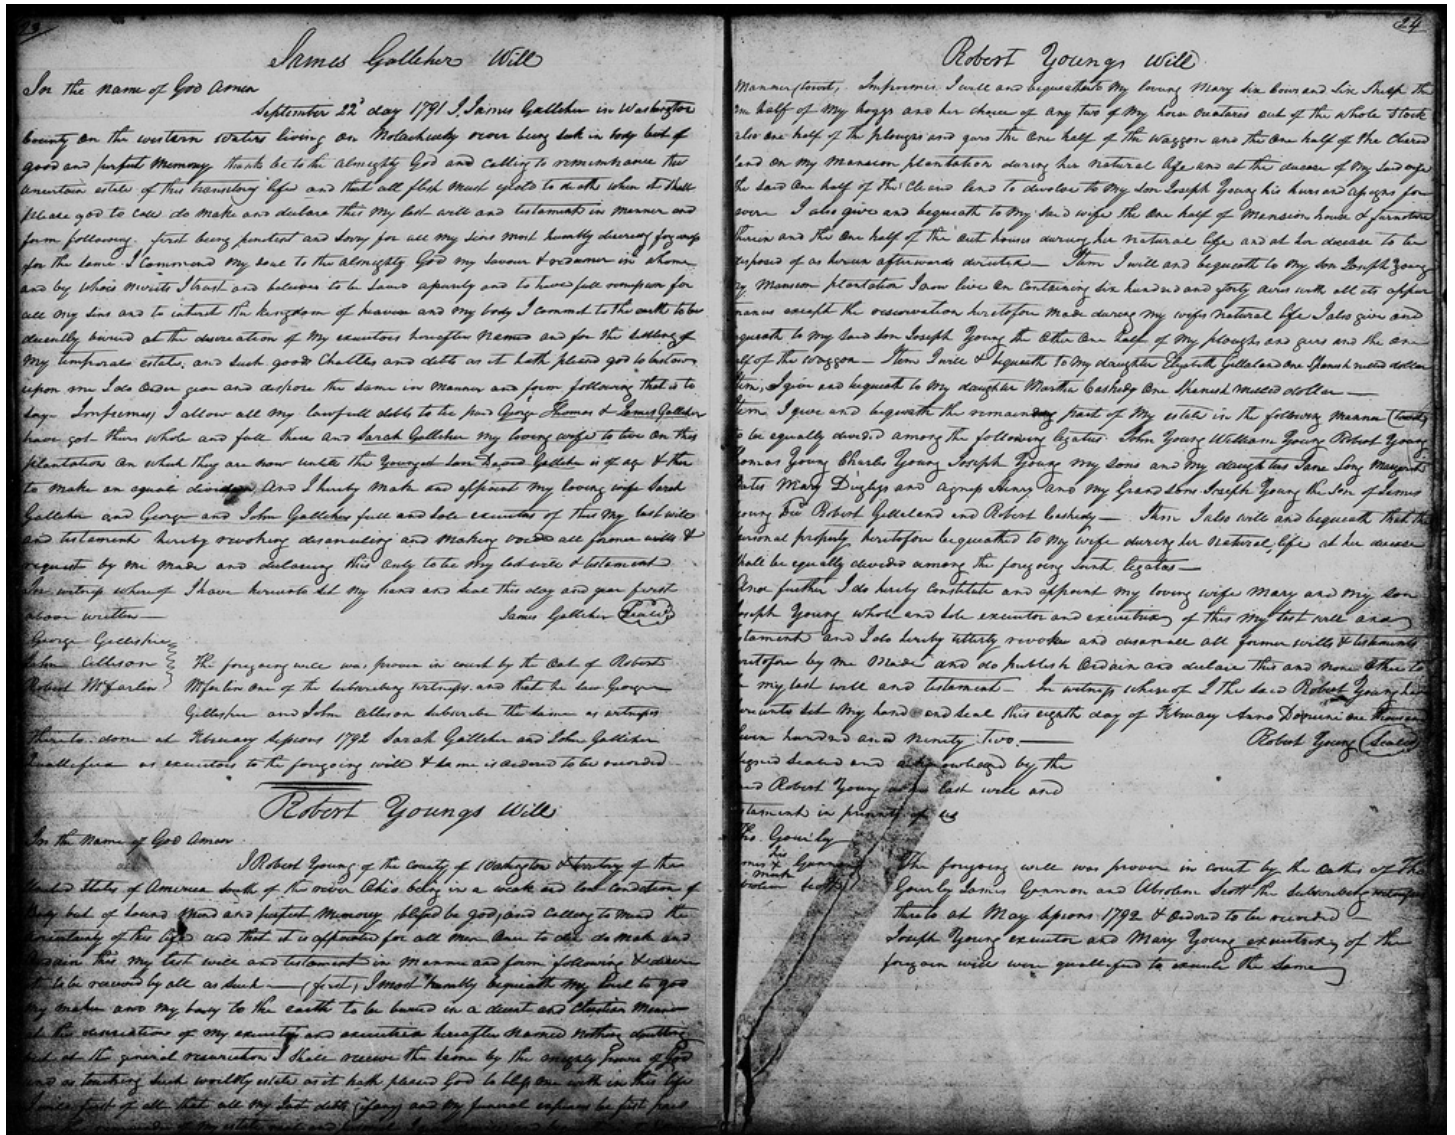 23
James Galleher Will
In the name of God Amen
September 22d day 1791 I, James Galleher in Washington
County on the western waters living on Nolachucky river being sick in body but of
good and perfect Memory thanks be to the Almighty God and calling to remembrance the
uncertain estate of this transitory life and that all flesh must yeald to death when it shall
please god to call do make and declare this my last will and testament in manner and
form following. first being penitent and sorry for all my sins most humbly desireing forgivness
for the same. I commend my soul to the almighty God my Savour & redeemer in whome
and by whose merits I trust and believe to be saved and to have full remission for
all my sins and to inherit the kingdom of heaven and my body I commit to the earth to be
decently buried at the discreation of my executors hereafter named and for the setling of
my temporal estate and such goods Chattles and debts as it hath pleasd god to bestow
upon me I do order give and dispose the same in manner and form following that is to
say- Imprimes, I allow all my lawfull debts to be paid George Thomas & James Galleher
have got theirs whole and full share and Sarah Galleher my loving wife to live on this
plantation on which they are now untill the Youngest Son David Galleher is of age & then
to make an equal division And I hereby make and appoint my loving wife Sarah
Galleher and George and John Galleher full and sole executors of this my last will
and testament hereby revoking disanuling and making void all former wills &
requests by me made and declaring this only to be my last will & testament
In witness whereof I have hereunto set my hand and seal this day and year first
above written —
James Galleher (Seald)
George Gillispie
John Allison
Robert McFarlin
The foregoing will was proven in court by the Oat of Robert
Mcfarlin one of the subscribing witness. and that he saw George
Gillespie and John Allison subscribe the same as witness
thereto. done at February sessions 1792 Sarah Galleher and John Galliher
Quallified as executors to the foregoing will & same is ordered to be recorded
Robert Youngs Will
In the Name of God Amen
I Robert Young of the County of Washington & territory of the
United States of America South of the river Ohio being in a weak and low condition of
Body but of sound mind and perfect Memory blessed be god, and calling to mind the
uncertainty of this life and that it is appointed for all men once to die do make and
Ordain this my last will and testament in manner and form following & desire
it to be received by all as such — (first) I most humbly bequeath my soul to god
my maker and my body to the earth to be buried in a decent and Christian Manner
at the discreation of my executor and executrix hereafter named nothing doubting
but at the general resurrection I shall receive the same by the mighty power of God
and as touching such worldly estate as it hath pleased God to bless me with in this life
I will first of all that all my Just debts (if any) and my funeral expences be first paid
remainder of my estate real and personal I

24
Robert Youngs Will
Manner (towit, Imprimes. I will and bequeath to my loving Mary six Cows and Six Sheep the
one half of my hoggs and her choice of any two of my horse creatures out of the whole Stock
also one half of the ploughs and gears the one half of the waggon and the one half of the Cleared
land on my mansion plantation during her natural life and at the decease of my said wife
the said one half of the cleared land to devolve to my son Joseph Young his heirs and assigns for
ever. I also give and bequeath to my said wife the one half of Mansion house & furniture
therein and the one half of the out houses during her natural life and at her decease to be
disposed of as herein afterwards directed — Item I will and bequeath to my son Joseph Young
my Mansion plantation I now live on containing six hundred and forty acres with all its appur
tenances except the reservation heretofore made during my wifes natural life I also give and
bequeath to my said son Joseph Young the other one half of my ploughs and gears and the one
half of the waggon — Item I will & bequeath to my daughter Elizabeth Gilleland one Spanish milled dollar
Item, I give and bequeath to my daughter Martha Caskedy One Spanish Milled dollar —
Item, I give and bequeath the remaining part of my estate in the following manner (towit)
to be equally divided among the following legatus. John Young William Young Robert Young
Thomas Young Charles Young Joseph Young my sons and my daughters Jane Long Margaret
Mary and Agness Henry and my Grandsons Joseph Young the Son of James
Young Robert Gilleland and Robert Caskedy — Item I also will and bequeath that the
personal property heretofore bequeathed to my wife during her natural life at her decease
shall be equally divided among the foregoing legatus —
And further I do hereby constitute and appoint my loving wife Mary and my son
Joseph Young whole and sole executor and executrix of this my last will and
testament and I do hereby utterly revoke and disannul all former wills & testaments
heretofore by me made and do publish Ordain and declare this and none other to
be my last will and testament — In witness whereof I the said Robert Young have
hereunto set my hand and seal this eighth day of February Anno Domini one thousand
seven hundred and ninety two. —
Robert Young (Sealed)
Signed Sealed and acknowledged by the
said Robert Young as his last will and
testament in presents of us
Tho. Gourley
his
James x Gannon
mark
Absolem Scott
The foregoing will was proven in court by the Oathes of Tho
Gourly James Gannon and Absolem Scott the Subscribing witnesses
thereto at May sessions 1792 & ordered to be recorded —
Joseph Young executor and Mary Young executrix of the
foregoin will were quallified to execute the same